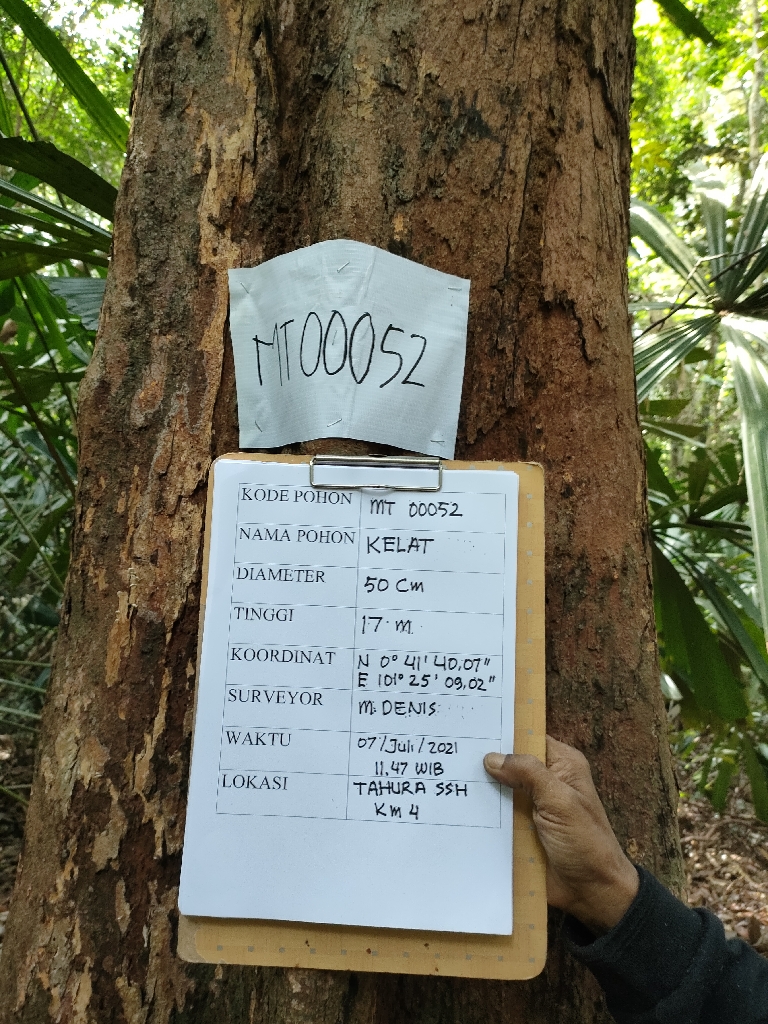 MT00052
KODE POHON MT 00052
NAMA POHON KELAT
DIAMETER 50 Cm
TINGGI 17 m
KOORDINAT N 0° 41' 40,07"
E 101° 25' 09,02"
SURVEYOR M. DENIS
WAKTU 07/Juli/2021
11.47 WIB
LOKASI TAHURA SSH
Km 4